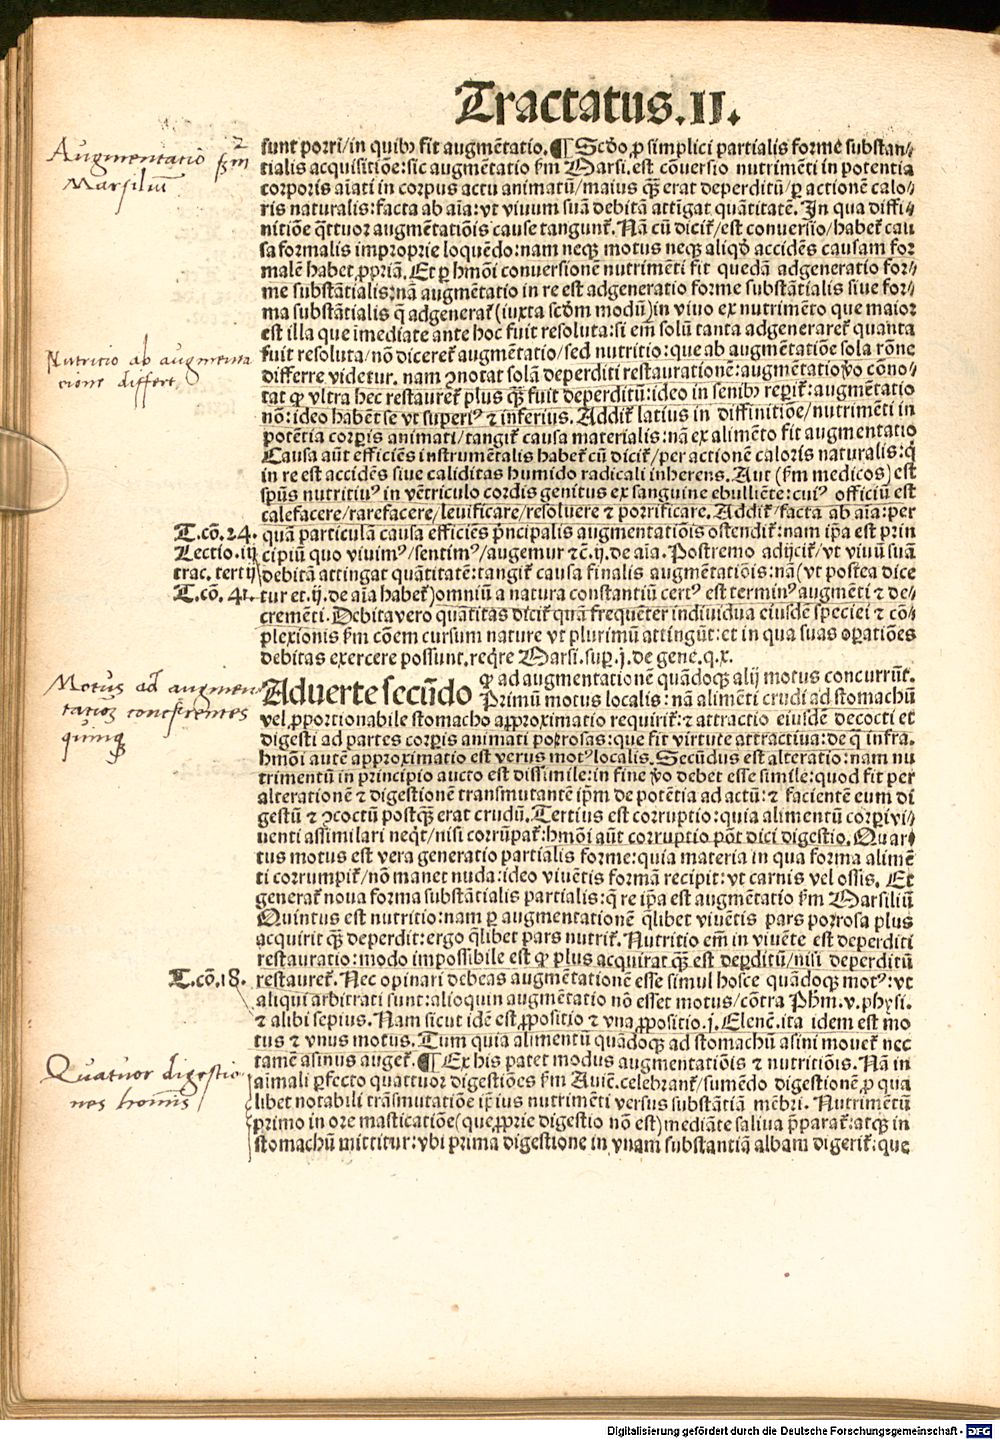 Tractatus.II.
sunt porri/in quibꝰ fit augmētatio.¶ Scd̓o ꝓ simplici partialis forme substan⸗
tialis acquisitiōe:sic augmētatio ẜm Marsi.est cōuersio nutrimēti in potentia
corporis aīati in corpus actu animatū/maius qȝ̄ erat deperditū/ꝑ actionē calo⸗
ris naturalis:facta ab aīa:vt viuum suā debitā attīgat quātitatē. In qua diffi⸗
nitiōe q̄ttuor augmētatiōis cause tangunt᷑. Nā cū dicit᷑/est conuersio/habet᷑ cau
sa formalis improprie loquēdo:nam neqꝫ motus neqꝫ aliqd̓ accidēs causam for
malē habet ꝓpriā. Et ꝑ hm̄oi conuersionē nutrimēti fit quedā adgeneratio for⸗
me substātialis:nā augmētatio in re est adgeneratio forme substātialis siue for⸗
ma substātialis q̄ adgenerat᷑(iuxta scd̓m modū)in viuo ex nutrimēto que maior
est illa que īmediate ante hoc fuit resoluta:si em̄ solū tanta adgeneraret᷑ quanta
fuit resoluta/nō diceret᷑ augmētatio/sed nutritio:que ab augmētatiōe sola rōne
differre videtur. nam ꝯnotat solā deperditi restaurationē:augmētatio v̓o cōno⸗
tat ꝙ vltra hec restauret᷑ plus qȝ̄ fuit deperditū:ideo in senibꝰ reperit᷑:augmētatio
nō:ideo habēt se vt superiꝰ ⁊ inferius. Addit᷑ latius in diffinitiōe/nutrimēti in
potētia corꝑis animati/tangit᷑ causa materialis:nā ex alimēto fit augmētatio
Causa aūt efficiēs instrumētalis habet᷑ cū dicit᷑/per actionē caloris naturalis:q̇
in re est accidēs siue caliditas humido radicali inherens. Aut (ẜm medicos) est
spūs nutritiuꝰ in vētriculo cordis genitus ex sanguine ebulliēte:cuiꝰ officiū est
calefacere/rarefacere/leuificare/resoluere ⁊ porrificare. Addit᷑/facta ab aīa:per
quā particulā causa efficiēs p̄ncipalis augmentatiōis ostendit᷑:nam ip̄a est prin
cipiū quo viuimꝰ/sentimꝰ/augemur ⁊c̄.ij.de aīa. Postremo adijcit᷑/vt viuū suā
debitā attingat quātitatē:tangit᷑ causa finalis augmētatiōis:nā(vt postea dice
tur et.ij.de aīa habet᷑)omniū a natura constantiū certꝰ est terminꝰ augmēti ⁊ de⸗
cremēti. Debita vero quātitas dicit᷑ quā frequēter indiuidua eiusdē speciei ⁊ cō⸗
plexionis ẜm cōem cursum nature vt plurimū attingūt:et in qua suas oꝑatiōes
debitas exercere possunt.reqr̄e Marsi.sup.j.de gene.q.x.
Aduerte secūdo ꝙ ad augmentationē quādoqꝫ alij motus concurrūt.
Primū motus localis:nā alimēti crudi ad stomachū
vel ꝓportionabile stomacho approximatio requirit᷑:⁊ attractio eiusdē decocti et
digesti ad partes corꝑis animati porrosas:que fit virtute attractiua:de q̄ infra.
hm̄oi autē approximatio est verus motꝰ localis. Secūdus est alteratio:nam nu
trimentū in principio aucto est dissimile:in fine v̓o debet esse simile:quod fit per
alterationē ⁊ digestionē transmutantē ip̄m de potētia ad actū:⁊ facientē eum di
gestū ⁊ ꝯcoctū postqȝ̄ erat crudū. Tertius est corruptio:quia alimentū corꝑi vi⸗
uenti assimilari neqt̓/nisi corrūpat᷑:hm̄oi aūt corruptio pōt dici digestio. Quar⸗
tus motus est vera generatio partialis forme:quia materia in qua forma alimē
ti corrumpit᷑/nō manet nuda:ideo viuētis formā recipit:vt carnis vel ossis. Et
generat᷑ noua forma substātialis partialis:q̄ re ip̄a est augmētatio ẜm Marsiliū
Quintus est nutritio:nam ꝑ augmentationē qlibet viuētis pars porrosa plus
acquirit qȝ̄ deperdit:ergo qlibet pars nutrit᷑. Nutritio em̄ in viuēte est deperditi
restauratio:modo impossibile est ꝙ plus acquirat qȝ̄ est deperditū/nisi deperditū
restauret᷑. Nec opinari debeas augmētationē esse simul hosce quādoqꝫ motꝰ:vt
aliqui arbitrati sunt:alioquin augmētatio nō esset motus/cōtra Ph̄m.v.physi.
⁊ alibi sepius. Nam sicut idē est ꝓpositio ⁊ vna ꝓpositio.j.Elenc̄.ita idem est mo
tus ⁊ vnus motus. Tum quia alimentū quādoqꝫ ad stomachū asini mouet᷑ nec
tamē asinus auget᷑.¶ Ex his patet modus augmentatiōis ⁊ nutritiōis. Nā in
aīmali ꝑfecto quattuor digestiōes ẜm Auic̄.celebrant᷑/sumēdo digestionē ꝓ qua
libet notabili trāsmutatiōe ip̄ius nutrimēti versus substātiā mēbri. Nutrimētū
primo in ore masticatiōe(que ꝓprie digestio nō est)mediāte saliua p̄parat᷑:atqꝫ in
stomachū mittitur:vbi prima digestione in vnam substantiā albam digerit᷑:que
Augmentatio 2 ẜm
Marsiliū
Nutritio ab augmenta
cione differt
T.cō.24.
Lectio.iij
trac.tertij
T.cō.41.
Motus ad augmen
tationem conferentes
quinqꝫ
T.cō.18.
Quatuor digestio
nes hoīnis
Digitalisierung gefördert durch die Deutsche Forschungsgemeinschaft - DFG